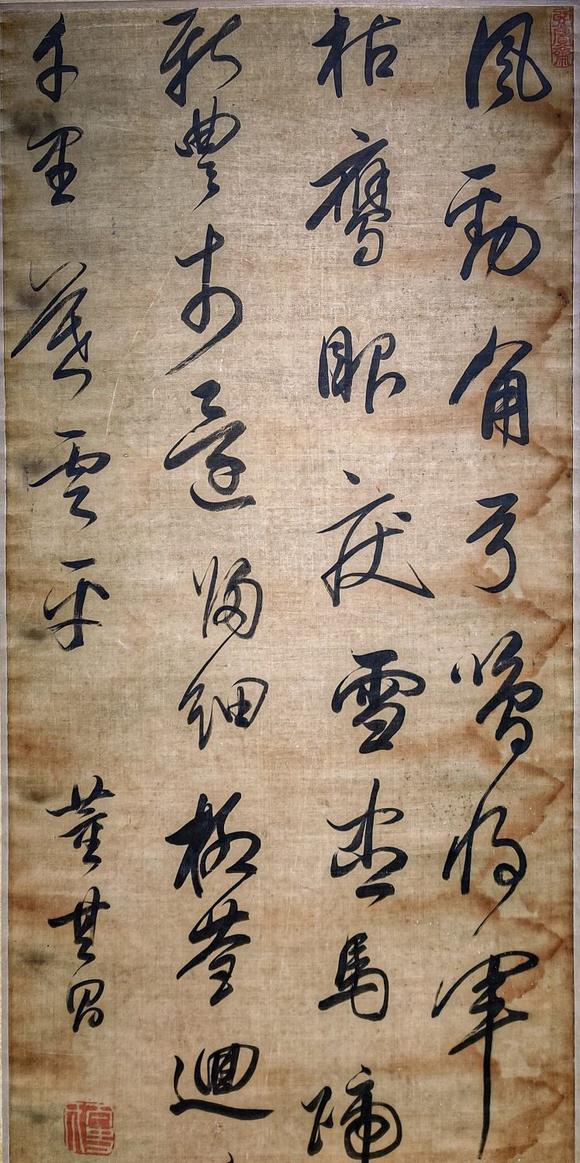 風勁角弓鳴將軍
枯鷹眼疾雪盡馬蹄
新豐市還歸細柳營迴
千里暮雲平
董其昌